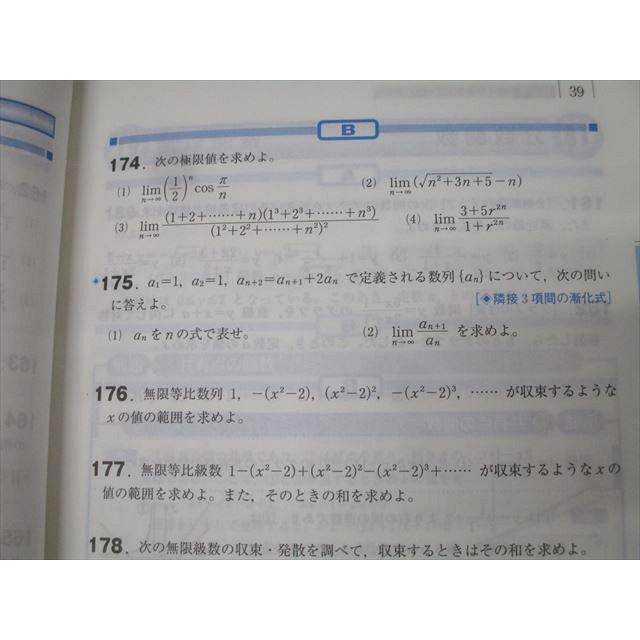 39
B
174. 次の極限値を求めよ。
(1) lim_{n→∞} (1/2)^n cos π/n (2) lim_{n→∞} (√(n²+3n+5) − n)
(3) lim_{n→∞} (1+2+……+n)(1³+2³+……+n³)/(1²+2²+……+n²)² (4) lim_{n→∞} (3+5r^{2n})/(1+r^{2n})
◆175. a₁=1, a₂=1, a_{n+2}=a_{n+1}+2a_n で定義される数列 {a_n} について，次の問い
に答えよ。 [◆隣接3項間の漸化式]
(1) a_n を n の式で表せ。 (2) lim_{n→∞} a_{n+1}/a_n を求めよ。
176. 無限等比数列 1, −(x²−2), (x²−2)², −(x²−2)³, …… が収束するような
x の値の範囲を求めよ。
177. 無限等比級数 1−(x²−2)+(x²−2)²−(x²−2)³+…… が収束するような x の
値の範囲を求めよ。また，そのときの和を求めよ。
178. 次の無限級数の収束・発散を調べて，収束するときはその和を求めよ。